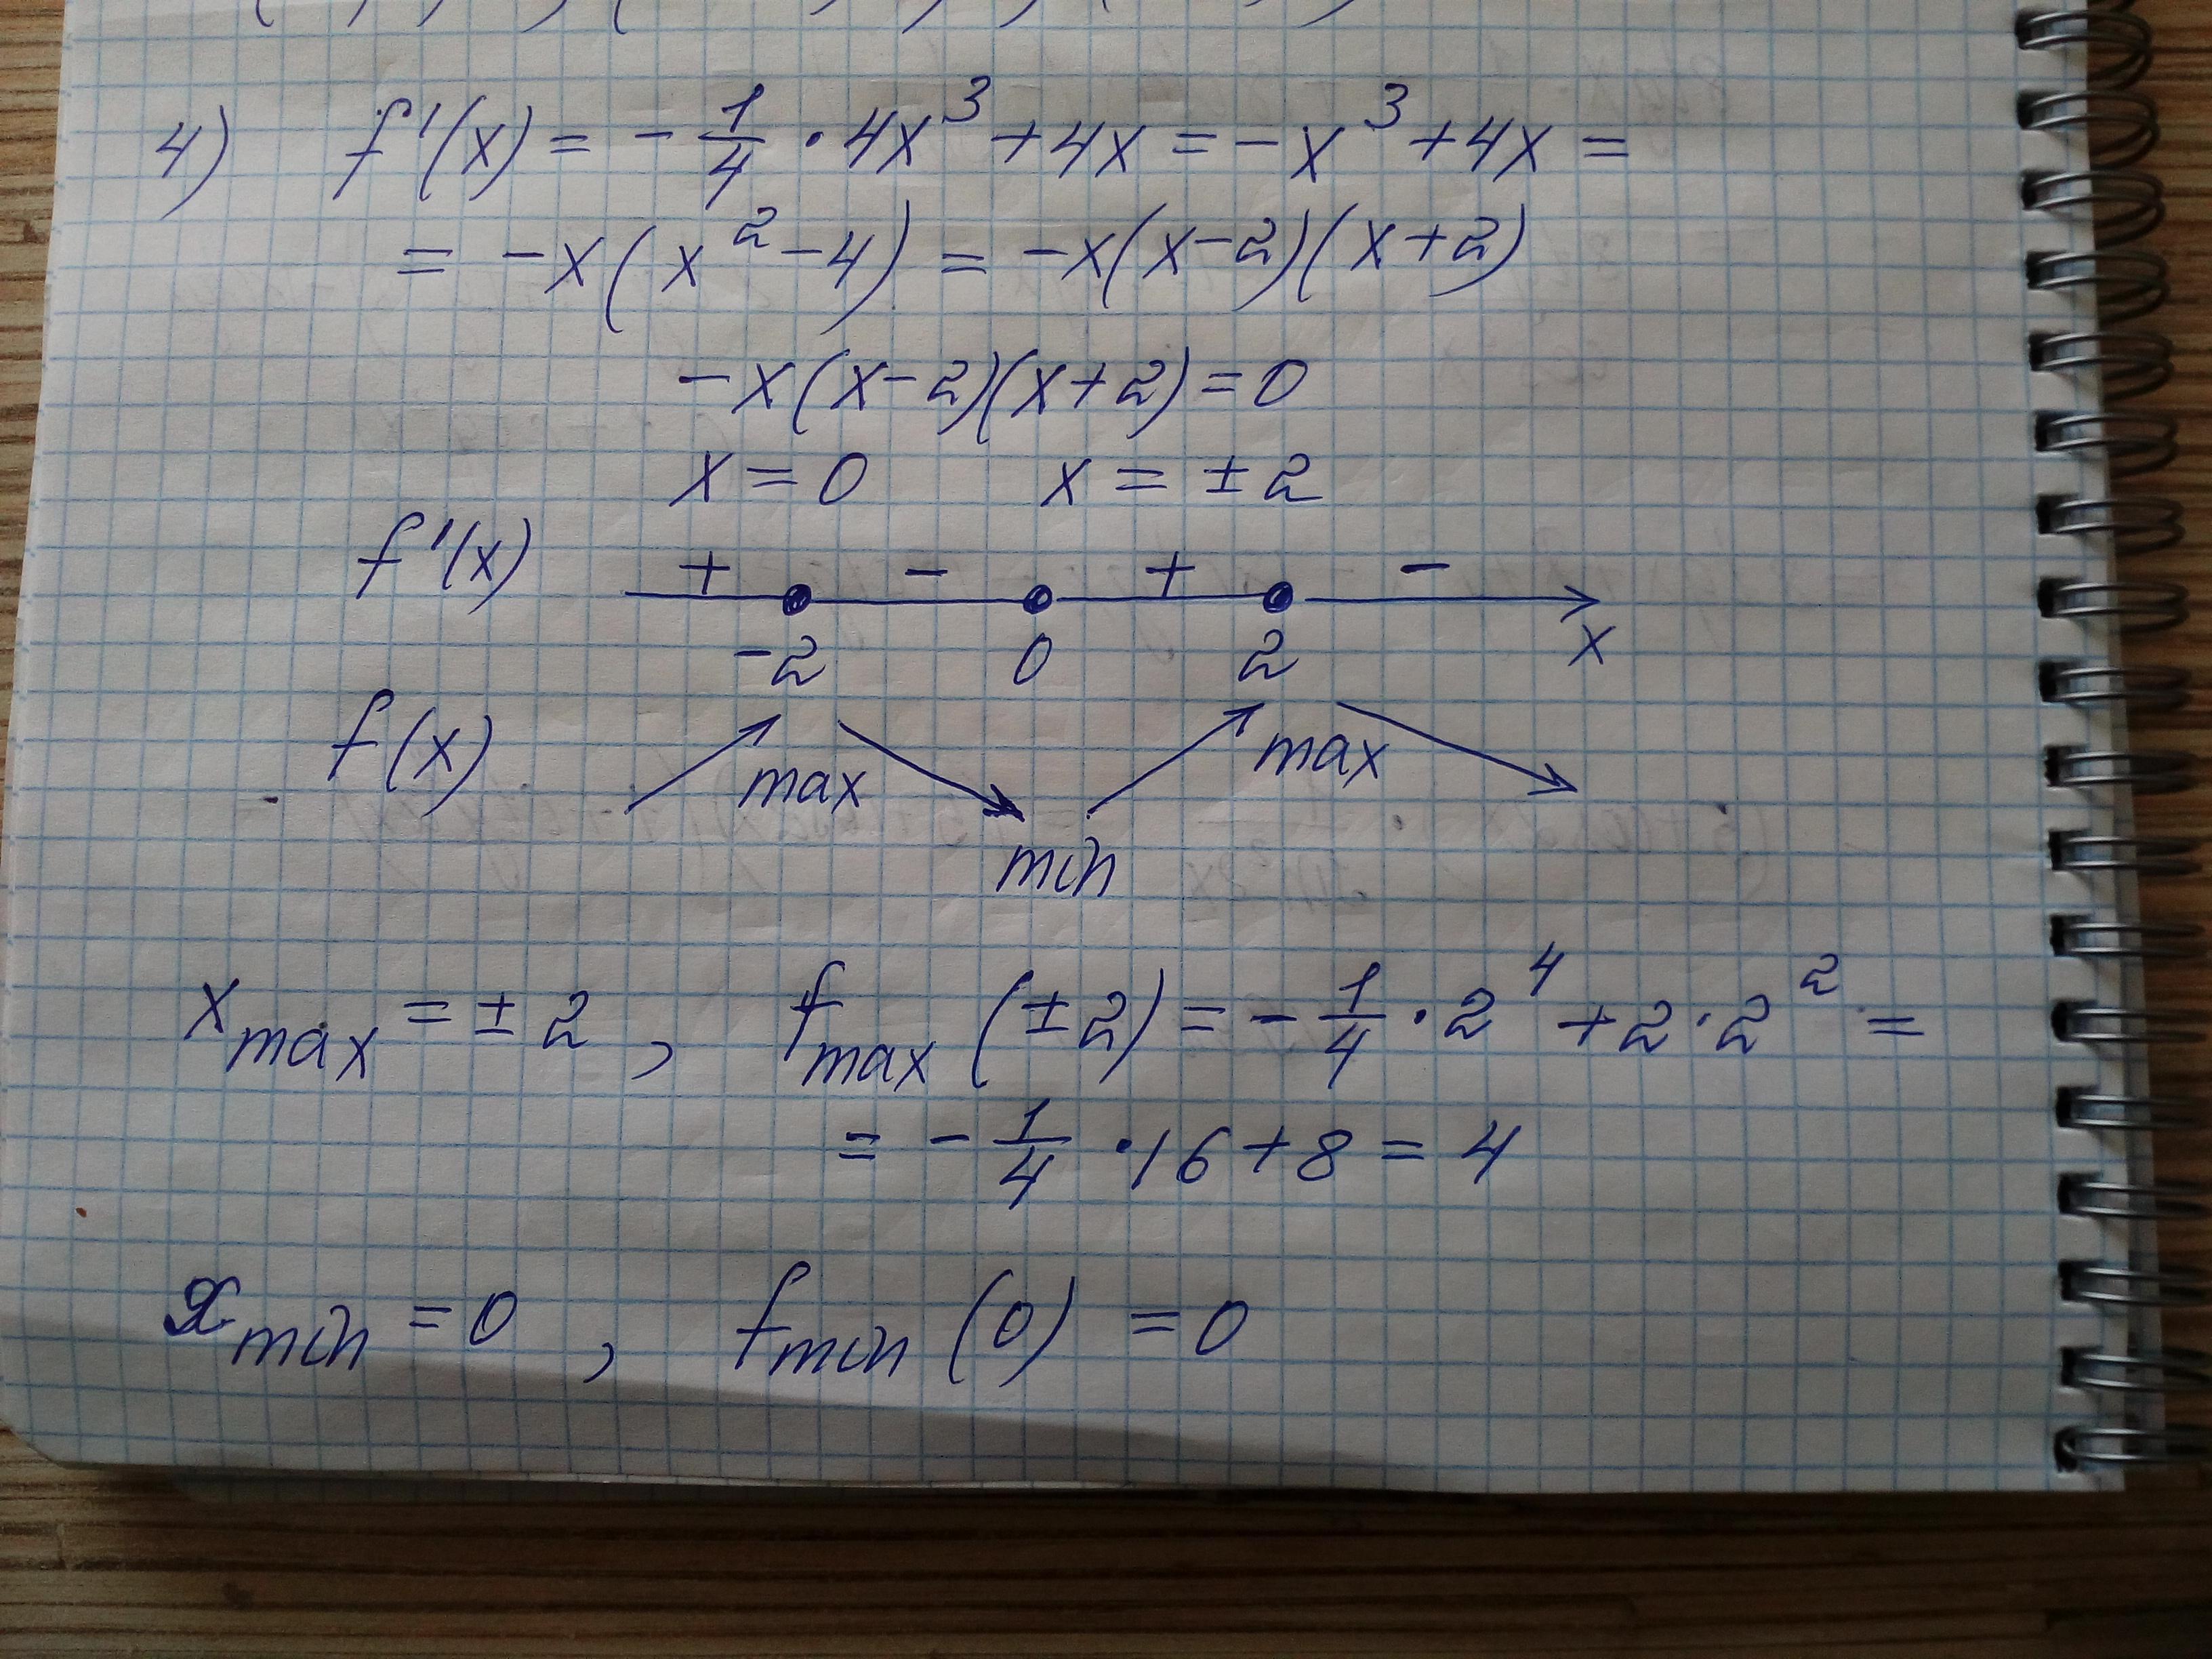 4) f'(x) = - 1/4 · 4x³ + 4x = - x³ + 4x =
= -x(x² - 4) = -x(x-2)(x+2)
-x(x-2)(x+2) = 0
x = 0 x = ± 2
f'(x) + - + -
-2 0 2 x
f(x) max max
min
x max = ± 2 , f max (±2) = - 1/4 · 2⁴ + 2 · 2² =
= - 1/4 · 16 + 8 = 4
x min = 0 , f min (0) = 0